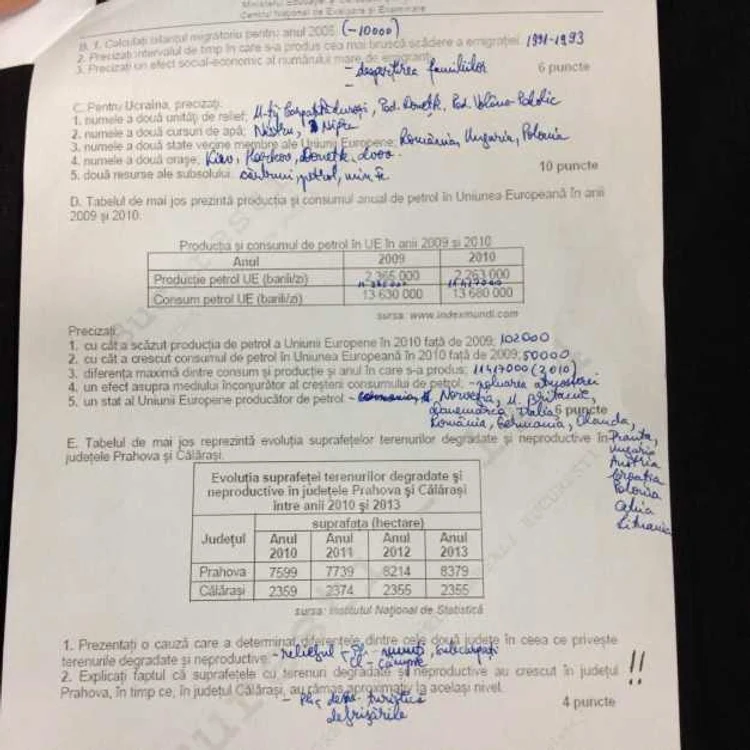 Ministerul Educației
Centrul Național de Evaluare și Examinare
B. 1. Calculați bilanțul migratoriu pentru anul 2005. (-10000)
2. Precizați intervalul de timp în care s-a produs cea mai bruscă scădere a emigrației. 1991-1993
3. Precizați un efect social-economic al numărului mare de emigranți.
- despărțirea familiilor 6 puncte
C. Pentru Ucraina, precizați:
1. numele a două unități de relief; M-ții Carpații Păduroși, Pod. Donețk, Pod. Volâno-Podolic
2. numele a două cursuri de apă; Nistru, Nipru
3. numele a două state vecine membre ale Uniunii Europene; România, Ungaria, Polonia
4. numele a două orașe; Kiev, Harkov, Donețk, Lvov.
5. două resurse ale subsolului. cărbuni, petrol, min. fe 10 puncte
D. Tabelul de mai jos prezintă producția și consumul anual de petrol în Uniunea Europeană în anii
2009 și 2010.
Producția și consumul de petrol în UE în anii 2009 și 2010
Anul 2009 2010
Producție petrol UE (barili/zi) 2 365 000 2 263 000
11 417 000
Consum petrol UE (barili/zi) 13 630 000 13 680 000
sursa: www.indexmundi.com
Precizați:
1. cu cât a scăzut producția de petrol a Uniunii Europene în 2010 față de 2009; 102000
2. cu cât a crescut consumul de petrol în Uniunea Europeană în 2010 față de 2009; 50000
3. diferența maximă dintre consum și producție și anul în care s-a produs; 11417000 (2010)
4. un efect asupra mediului înconjurător al creșterii consumului de petrol; - poluarea atmosferei
5. un stat al Uniunii Europene producător de petrol. - Norvegia, M. Britanie,
Danemarca, Italia 6 puncte
România, Germania, Olanda,
E. Tabelul de mai jos reprezintă evoluția suprafețelor terenurilor degradate și neproductive în Franța,
județele Prahova și Călărași. Ungaria
Austria
Croația
Polonia
Cehia
Lituania
Evoluția suprafeței terenurilor degradate și
neproductive în județele Prahova și Călărași
între anii 2010 și 2013
Județul suprafața (hectare)
Anul 2010 Anul 2011 Anul 2012 Anul 2013
Prahova 7599 7739 8214 8379
Călărași 2359 2374 2355 2355
sursa: Institutul Național de Statistică
1. Prezentați o cauză care a determinat diferențele dintre cele două județe în ceea ce privește
terenurile degradate și neproductive. - relieful - Ph - munți, subcarpați
Cl - câmpie
2. Explicați faptul că suprafețele cu terenuri degradate și neproductive au crescut în județul !!
Prahova, în timp ce, în județul Călărași, au rămas aproximativ la același nivel.
- Ph, dezv. turistică 4 puncte
defrișările